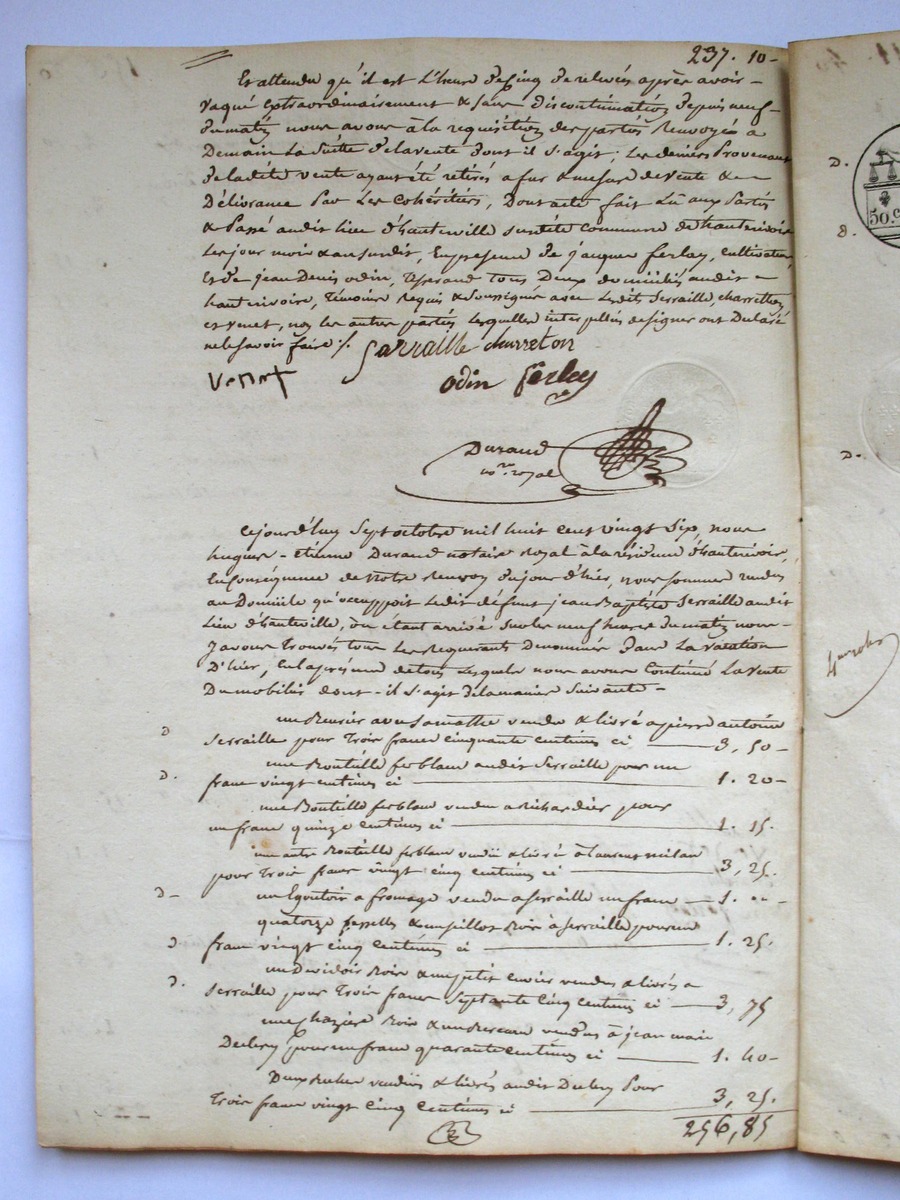 237. 10-
Et attendu qu'il est L'heure de cinq de relevée après avoir
vaqué extraordinairement & sans discontinuation depuis neuf
du matin nous avons à la requisition des parties Renvoyés a
Demain La Suitte de la vente dont il s'agit; Les deniers Provenant
de ladite vente ayant été retirés a fur & mesure de vente &
Délivrance Par Les Cohéritiers, Dont acte fait Lu aux Parties
& Passé audit lieu d'hauteville susdite commune de hauterivoire
Les jour mois & an susdit, En présence de jacques ferlay, cultivateur
Et de jean Denis odin, tisserand tous Deux domiciliés audit
hauterivoire, témoins Requis & Soussignés avec Lesdits Serraille, charretton
et venet, non les autres parties Lesquelles interpellés de signer ont Déclaré
ne le savoir faire /.
Sarraille charreton
Venet
odin ferlay
Durand
no.re royal
Cejourd'huy Sept octobre mil huit cent vingt Six, nous
hugues-etienne Durand notaire Royal à la résidence d'hauterivoire,
En conséquence de Notre Renvoy du jour d'hier, nous sommes rendus
au Domicile qu'occuppoit Ledit défunt jean Baptiste Serraille audit
Lieu d'hauteville, où étant arrivé Sur les neuf heures du matin nous
y avons Trouvés tous Les Requerants Denommés Dans La vacation
D'hier, En la présence de tous Lesquels nous avons Continué La vente
Du mobilier dont il S'agit de la manière Suivante
vendu & livré a pierre antoine
D Serraille pour Trois francs cinquante centimes ci 3, 50
une Bouteille fer blanc audit Serraille pour un
D. franc vingt centimes ci 1. 20
une Bouteille fer blanc vendue a Richardier pour
un franc quinze centimes ci 1. 15.
une autre Bouteille fer blanc vendu & livré à laurent milan
pour Trois francs vingt cinq centimes ci 3, 25.
D un Egoutoir a fromage vendu a Serraille un franc 1. "
quatorze fesselles & un Bois à Serraille pour un
D franc vingt cinq centimes ci 1. 25.
un Devidoir Bois & un petit cuvier vendus & livrés a
D. Serraille pour Trois francs Septante Cinq centimes ci 3, 75
une Bois & un Berceau vendus à jean marie
pour un franc quarante centimes ci 1. 40
Deux vendus & livrés audit Pour
Trois francs vingt Cinq centimes ci 3, 25.
256, 85
D.
D.
D.
50.c